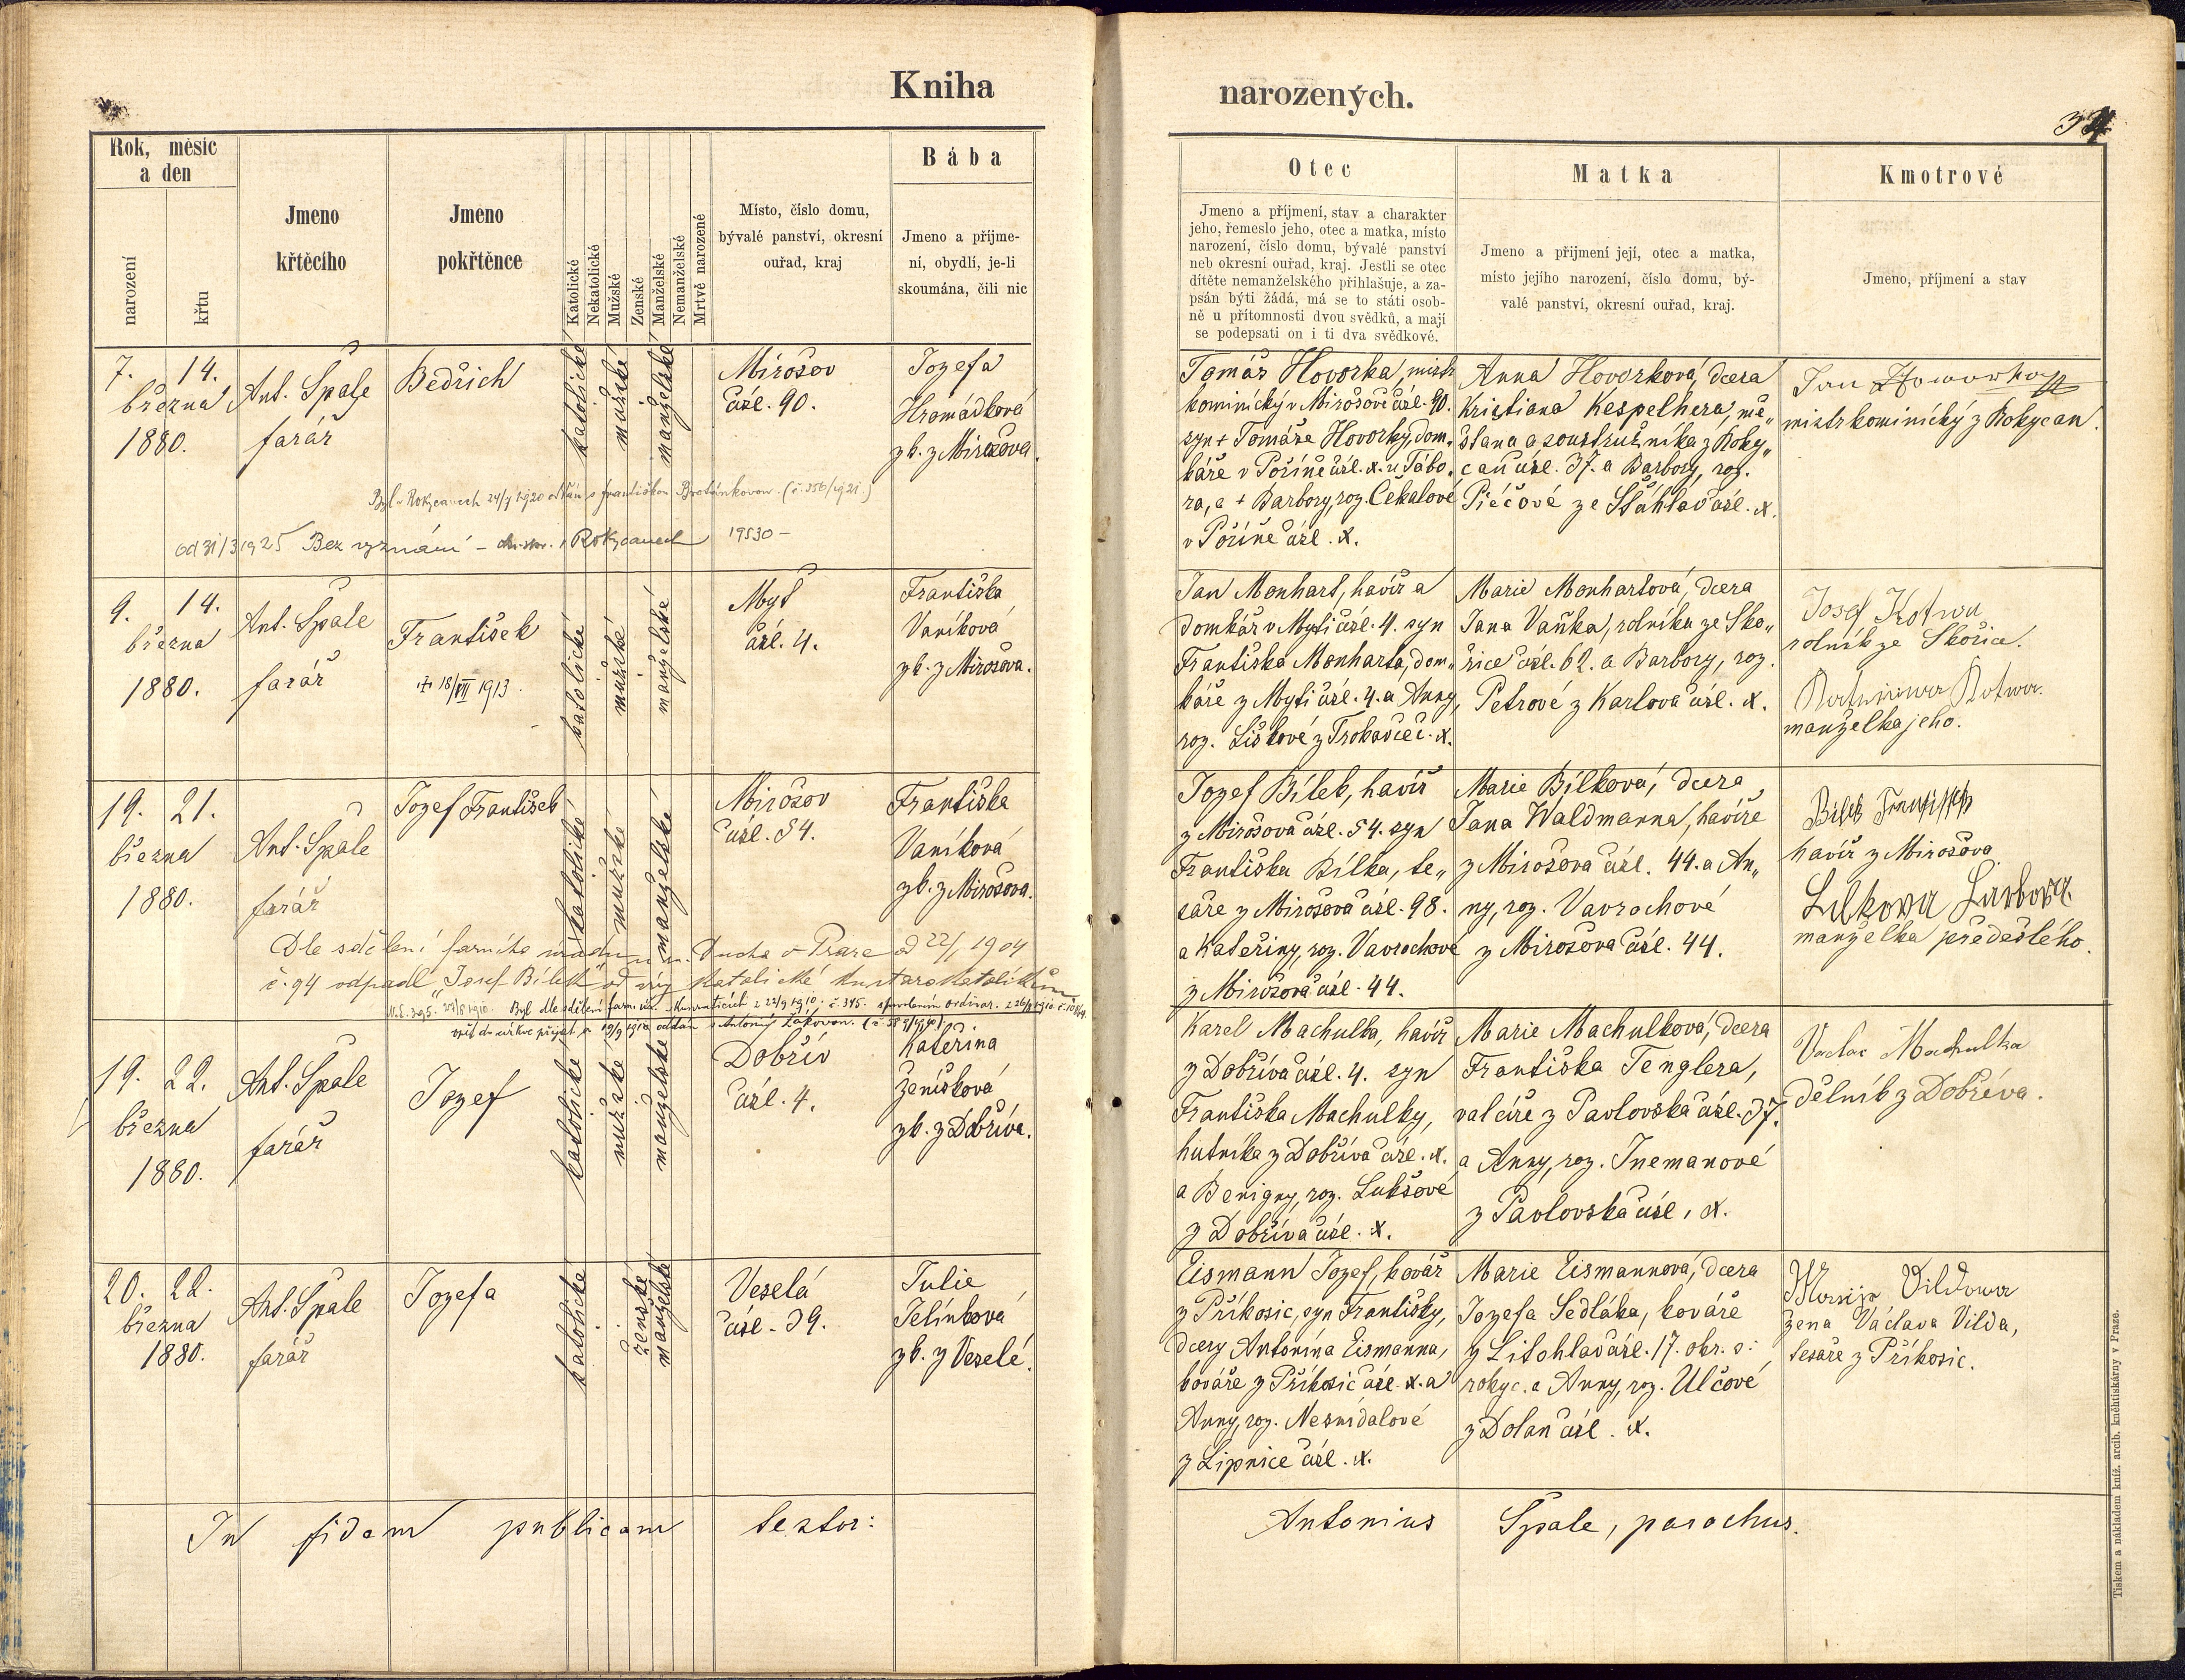 Kniha
narozených.
34
Rok, měsíc
a den
narození
křtu
Jmeno
křtěcího
Jmeno
pokřtěnce
Katolické
Nekatolické
Mužské
Ženské
Manželské
Nemanželské
Mrtvě narozené
Místo, číslo domu,
bývalé panství, okresní
ouřad, kraj
Bába
Jmeno a příjme-
ní, obydlí, je-li
skoumána, čili nic
Otec
Jmeno a příjmení, stav a charakter
jeho, řemeslo jeho, otec a matka, místo
narození, číslo domu, bývalé panství
neb okresní ouřad, kraj. Jestli se otec
dítěte nemanželského přihlašuje, a za-
psán býti žádá, má se to státi osob-
ně u přítomnosti dvou svědků, a mají
se podepsati on i ti dva svědkové.
Matka
Jmeno a přijmení její, otec a matka,
místo jejího narození, číslo domu, bý-
valé panství, okresní ouřad, kraj.
Kmotrové
Jmeno, příjmení a stav
7. 14.
března
1880.
Ant. Špale
farář
Bedřich
katolické
mužské
manželské
Mirošov
čísl. 90.
Jozefa
Hromádková
zk. z Mirošova.
Byl v Rokycanech 24/9 1920 oddán s Františkou Brotánkovou. (č. 356/1921)
od 31/3 1925 Bez vyznání - Rokycanech 19530 -
Tomáš Hovorka, mistr
kominický v Mirošově čísl. 90.
syn + Tomáše Hovorky, dom-
káře v Poříně čísl. x. u Tábo-
ra, a + Barbory, roz. Čekalové
v Poříně čísl. x.
Anna Hovorková, dcera
Kristiana Kespelhera, mě„
šťana a soustružníka z Roky„
can čísl. 37. a Barbory, roz.
Piéčové ze Šťáhlav čísl. x.
Jan Howorka
mistr kominický z Rokycan.
9. 14.
března
1880.
Ant. Špale
farář
František
18/VII 1913.
katolické
mužské
manželské
Myť
čísl. 4.
Františka
Vaníková
zk. z Mirošova.
Jan Monhart, havíř a
domkář v Myti čísl. 4. syn
Františka Monharta, dom„
káře z Myti čísl. 4. a Anny,
roz. Liškové z Trokavec č. x.
Marie Monhartová, dcera
Jana Vaňka, rolníka ze Sko„
řice čísl. 62. a Barbory, roz.
Petrové z Karlova čísl. x.
Josef Kotwa
rolník ze Skořice.
Kotwa.
manželka jeho.
19. 21.
března
1880.
Ant. Špale
farář
Jozef František
katolické
mužské
manželské
Mirošov
čísl. 54.
Františka
Vaníková
zk. z Mirošova.
Dle sdělení farního úřadu u sv. Ducha v Praze od 22/1 1904
č. 94 odpadl „Josef Bílek" od víry katolické ku starokatolíkům
Byl dle sdělení farn. úř.
opět do církve přijat a 19/9 1910 oddán s Antonií Žákovou.
Jozef Bílek, havíř
z Mirošova čísl. 54. syn
Františka Bílka, te„
saře z Mirošova čísl. 98.
a Kateřiny, roz. Vavrochové
z Mirošova čísl. 44.
Marie Bílková, dcera
Jana Waldmanna, havíře
z Mirošova čísl. 44. a An„
ny, roz. Vavrochové
z Mirošova čísl. 44.
Bílek František
havíř z Mirošova
manželka předešlého.
19. 22.
března
1880.
Ant. Špale
farář
Jozef
katolické
mužské
manželské
Dobřív
čísl. 4.
Kateřina
Ženíšková
zk. z Dobříva.
Karel Machulka, havíř
z Dobříva čísl. 4. syn
Františka Machulky,
hutníka z Dobříva čísl. x.
a Benigny, roz. Lukšové
z Dobříva čísl. x.
Marie Machulková, dcera
Františka Tenglera,
valcíře z Pavlovska čísl. 37.
a Anny, roz. Tnemanové
z Pavlovska čísl. x.
Vaclav Machulka
dělník z Dobříva.
20. 22.
března
1880.
Ant. Špale
farář
Jozefa
katolické
ženské
manželské
Veselá
čísl. 39.
Julie
Jelínková
zk. z Veselé.
Eismann Jozef, kovář
z Příkosic, syn Františky,
dcery Antonína Eismanna,
kováře z Příkosic čísl. x. a
Anny, roz. Nesnídalové
z Lipnice čísl. x.
Marie Eismannová, dcera
Jozefa Sedláka, kováře
z Litohlav čísl. 17. okr. o:
rokyc. a Anny, roz. Ulčové
z Dolan čísl. x.
Marija Vildowa
žena Václava Vilda,
tesaře z Příkosic.
In fidem publicam testor:
Antonius Špale, parochus.
Tiskem a nákladem kníž. arcib. knihtiskárny v Praze.